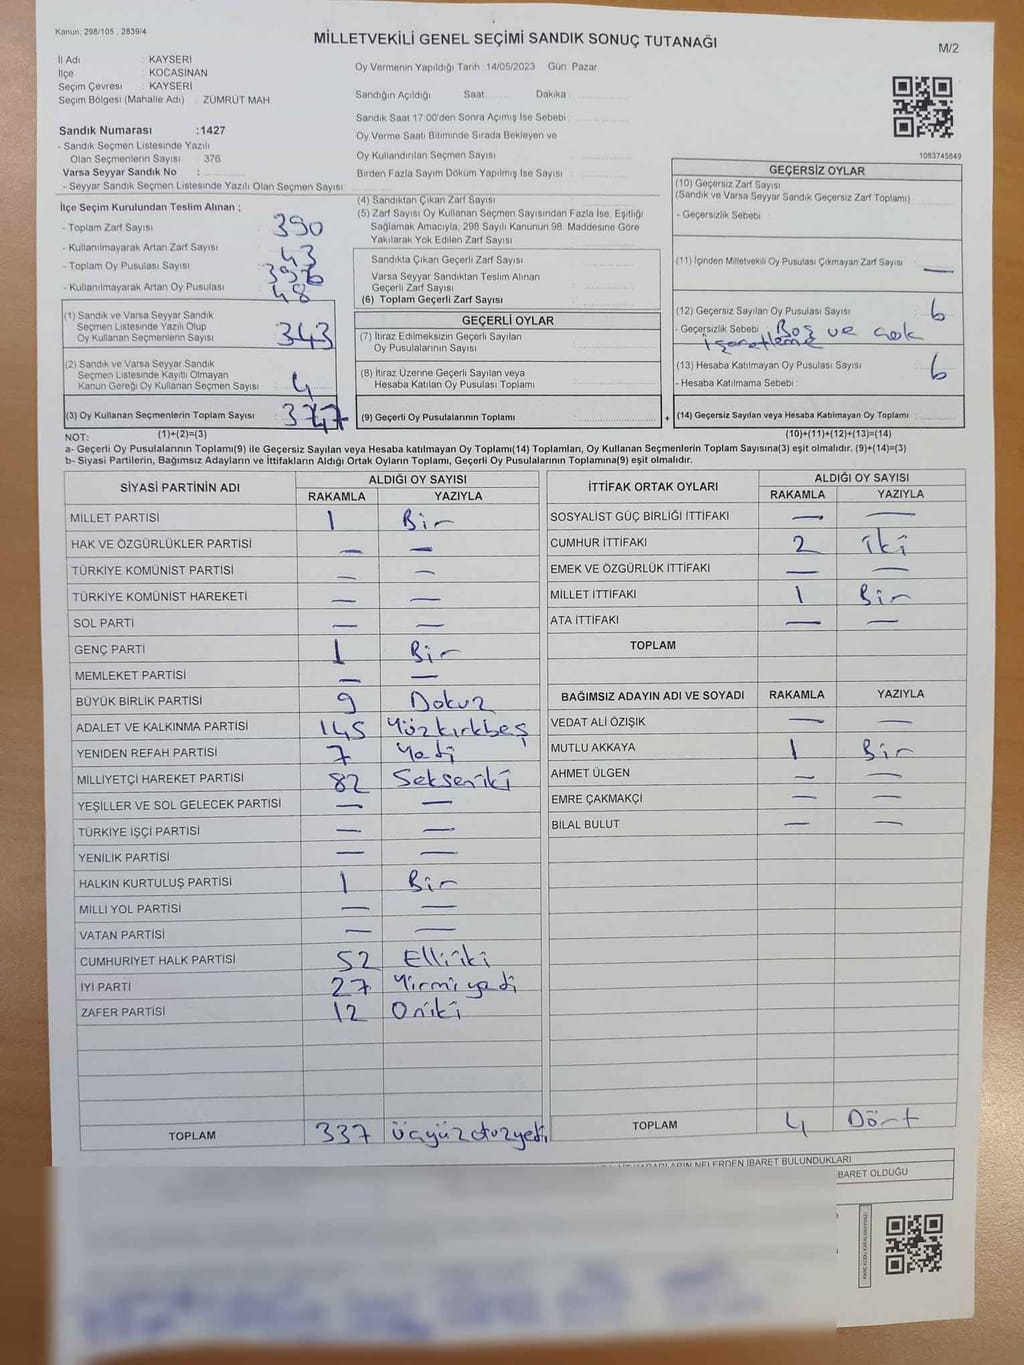 Kanun: 298/105 , 2839/4
MİLLETVEKİLİ GENEL SEÇİMİ SANDIK SONUÇ TUTANAĞI
M/2
İl Adı : KAYSERİ
İlçe : KOCASİNAN
Seçim Çevresi : KAYSERİ
Seçim Bölgesi (Mahalle Adı) : ZÜMRÜT MAH
Sandık Numarası :1427
- Sandık Seçmen Listesinde Yazılı
Olan Seçmenlerin Sayısı : 376
Varsa Seyyar Sandık No :
- Seyyar Sandık Seçmen Listesinde Yazılı Olan Seçmen Sayısı :
Oy Vermenin Yapıldığı Tarih :14/05/2023 Gün: Pazar
Sandığın Açıldığı Saat: Dakika :
Sandık Saat 17.00'den Sonra Açımış İse Sebebi :
Oy Verme Saati Bitiminde Sırada Bekleyen ve
Oy Kullandırılan Seçmen Sayısı :
Birden Fazla Sayım Döküm Yapılmış İse Sayısı :
1083745849
İlçe Seçim Kurulundan Teslim Alınan ;
- Toplam Zarf Sayısı : 390
- Kullanılmayarak Artan Zarf Sayısı : 43
- Toplam Oy Pusulası Sayısı :
- Kullanılmayarak Artan Oy Pusulası : 48
(1) Sandık ve Varsa Seyyar Sandık
Seçmen Listesinde Yazılı Olup
Oy Kullanan Seçmenlerin Sayısı : 343
(2) Sandık ve Varsa Seyyar Sandık
Seçmen Listesinde Kayıtlı Olmayan
Kanun Gereği Oy Kullanan Seçmen Sayısı : 4
(3) Oy Kullanan Seçmenlerin Toplam Sayısı : 347
(4) Sandıktan Çıkan Zarf Sayısı :
(5) Zarf Sayısı Oy Kullanan Seçmen Sayısından Fazla İse, Eşitliği
Sağlamak Amacıyla, 298 Sayılı Kanunun 98. Maddesine Göre
Yakılarak Yok Edilen Zarf Sayısı :
Sandıkta Çıkan Geçerli Zarf Sayısı :
Varsa Seyyar Sandıktan Teslim Alınan
Geçerli Zarf Sayısı :
(6) Toplam Geçerli Zarf Sayısı :
GEÇERLİ OYLAR
(7) İtiraz Edilmeksizin Geçerli Sayılan
Oy Pusulalarının Sayısı :
(8) İtiraz Üzerine Geçerli Sayılan veya
Hesaba Katılan Oy Pusulası Toplamı :
(9) Geçerli Oy Pusulalarının Toplamı : +
GEÇERSİZ OYLAR
(10) Geçersiz Zarf Sayısı
(Sandık ve Varsa Seyyar Sandık Geçersiz Zarf Toplamı) :
- Geçersizlik Sebebi :
(11) İçinden Milletvekili Oy Pusulası Çıkmayan Zarf Sayısı : —
(12) Geçersiz Sayılan Oy Pusulası Sayısı : 6
- Geçersizlik Sebebi : Boş ve çok
işaretleme
(13) Hesaba Katılmayan Oy Pusulası Sayısı : 6
- Hesaba Katılmama Sebebi :
(14) Geçersiz Sayılan veya Hesaba Katılmayan Oy Toplamı :
NOT: (1)+(2)=(3) (10)+(11)+(12)+(13)=(14)
a- Geçerli Oy Pusulalarının Toplamı(9) ile Geçersiz Sayılan veya Hesaba katılmayan Oy Toplamı(14) Toplamları, Oy Kullanan Seçmenlerin Toplam Sayısına(3) eşit olmalıdır. (9)+(14)=(3)
b- Siyasi Partilerin, Bağımsız Adayların ve İttifakların Aldığı Ortak Oyların Toplamı, Geçerli Oy Pusulalarının Toplamına(9) eşit olmalıdır.
SİYASİ PARTİNİN ADI ALDIĞI OY SAYISI
RAKAMLA YAZIYLA
MİLLET PARTİSİ 1 Bir
HAK VE ÖZGÜRLÜKLER PARTİSİ — —
TÜRKİYE KOMÜNİST PARTİSİ — —
TÜRKİYE KOMÜNİST HAREKETİ — —
SOL PARTİ — —
GENÇ PARTİ 1 Bir
MEMLEKET PARTİSİ — —
BÜYÜK BİRLİK PARTİSİ 9 Dokuz
ADALET VE KALKINMA PARTİSİ 145 Yüzkırkbeş
YENİDEN REFAH PARTİSİ 7 Yedi
MİLLİYETÇİ HAREKET PARTİSİ 82 Seksenİki
YEŞİLLER VE SOL GELECEK PARTİSİ — —
TÜRKİYE İŞÇİ PARTİSİ — —
YENİLİK PARTİSİ — —
HALKIN KURTULUŞ PARTİSİ 1 Bir
MİLLİ YOL PARTİSİ — —
VATAN PARTİSİ — —
CUMHURİYET HALK PARTİSİ 52 Elliiki
İYİ PARTİ 27 Yirmi yedi
ZAFER PARTİSİ 12 Oniki
TOPLAM 337 Üçyüzotuzyedi
İTTİFAK ORTAK OYLARI ALDIĞI OY SAYISI
RAKAMLA YAZIYLA
SOSYALİST GÜÇ BİRLİĞİ İTTİFAKI — —
CUMHUR İTTİFAKI 2 İki
EMEK VE ÖZGÜRLÜK İTTİFAKI — —
MİLLET İTTİFAKI 1 Bir
ATA İTTİFAKI — —
TOPLAM
BAĞIMSIZ ADAYIN ADI VE SOYADI RAKAMLA YAZIYLA
VEDAT ALİ ÖZIŞIK — —
MUTLU AKKAYA 1 Bir
AHMET ÜLGEN — —
EMRE ÇAKMAKÇİ — —
BİLAL BULUT — —
TOPLAM 4 Dört
NELERDEN İBARET BULUNDUKLARI
BARET OLDUĞU